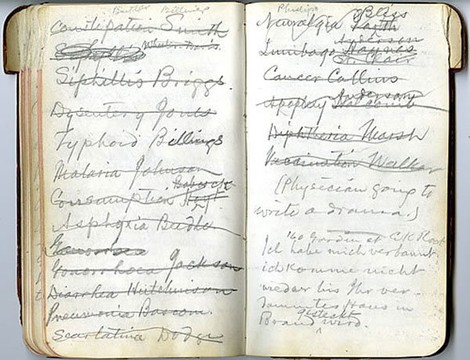 Butler Billings
Constipation Smith
Siphillis Briggs.
Dysentery Jones
Typhoid Billings
Malaria Johnson
Babcock
Consumption Hoyt
Asphyxia Butler
Gonorrhoea Jackson
Diarrhea Hutchinson
Pneumonia Bascom.
Scarlatina Dodge
Phillips Bliss
Neuralgia
Anderson
Lumbago Haynes
St. Clair
Cancer Collins
Anderson
Apoplexy
Diphtheria Marsh
Vaccination Walker
(Physician going to
write a drama.)
Ich habe mich verbaunt,
ich komme nicht
weder bis Ihr ver-
Haus in
Brand gesteckt
wird.